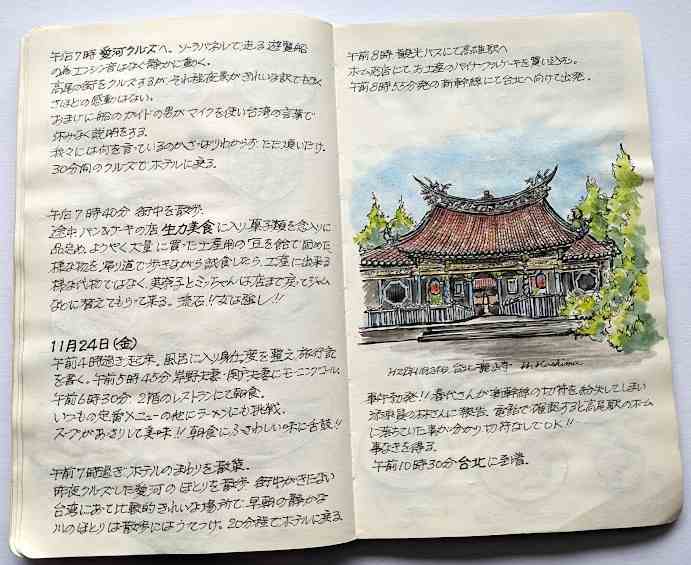 午后7時 愛河クルズへ。ソーラパネルで走る遊覧船
の為エンジン音はなく静かに動く。
高尾の街をクルズするが、それ程夜景がきれいな訳でもなく
さほどの感動はない。
おまけに船のガイドの男がマイクを使い台湾の言葉で
休みなく説明をする。
我々には何を言っているのかさっぱりわからず、ただ煩いだけ。
30分間のクルズでホテルに戻る。
午后7時40分 街中を散歩。
途中パン&ケーキの店 生力美食に入り菓子類を念入りに
品定め、ようやく大量に買った土産用の豆を飴で固めた
様な物を帰り道で歩きながら試食したら、土産に出来る
様な代物ではなく、美奈子とミッちゃんは店まで戻ってジャム
などに替えてもらって来る。流石!!女は強し!!
11月24日(金)
午前4時過ぎ起床。風呂に入り身仕度を整え旅行記
を書く。午前5時45分 岸野夫妻・岡戸夫妻にモーニングコール。
午前6時30分 2階のレストランにて朝食。
いつもの定番メニューの他にラーメンにも挑戦。
スープがあっさりして美味!!朝食にふさわしい味に舌鼓!!
午前7時過ぎ ホテルのまわりを散策。
昨夜クルズした愛河のほとりを散歩 街中がきたない
台湾にあって比較的きれいな場所で早朝の静かな
川のほとりは散歩にはうってつけ。20分程でホテルに戻る
午前8時 観光バスにて高雄駅へ
ホーム売店にてお土産のパイナップルケーキを買い込む。
午前8時55分発の新幹線にて台北へ向けて出発。
台北 龍山寺
事件勃発!!春代さんが新幹線の切符を紛失してしまい
添乗員の林さんに報告、電話で確認すると高尾駅のホーム
に落ちていた事が分かり切符なしでOK!!
事なきを得る。
午前10時30分 台北に到着。